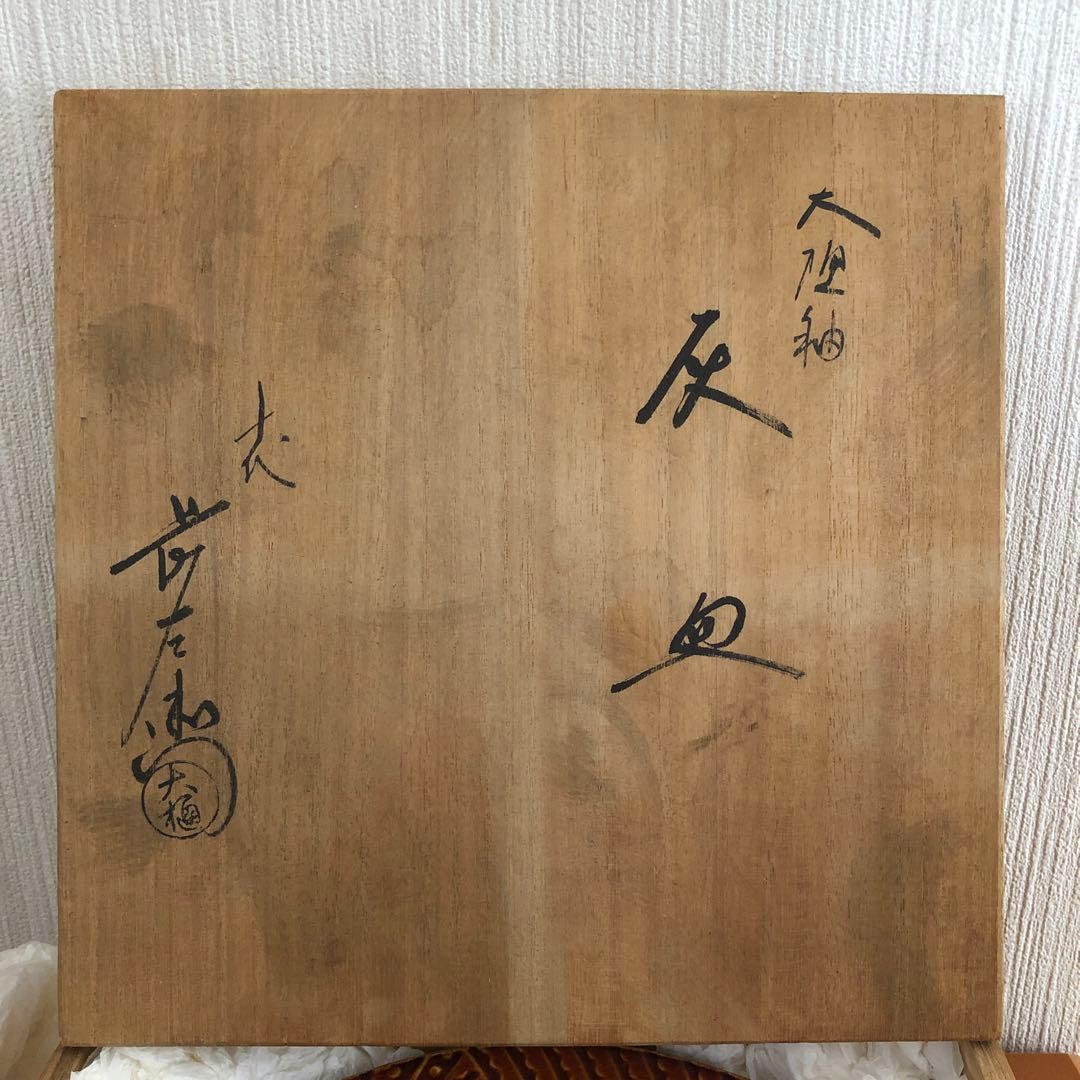 大樋釉
灰皿
十代
長左衛門
大樋